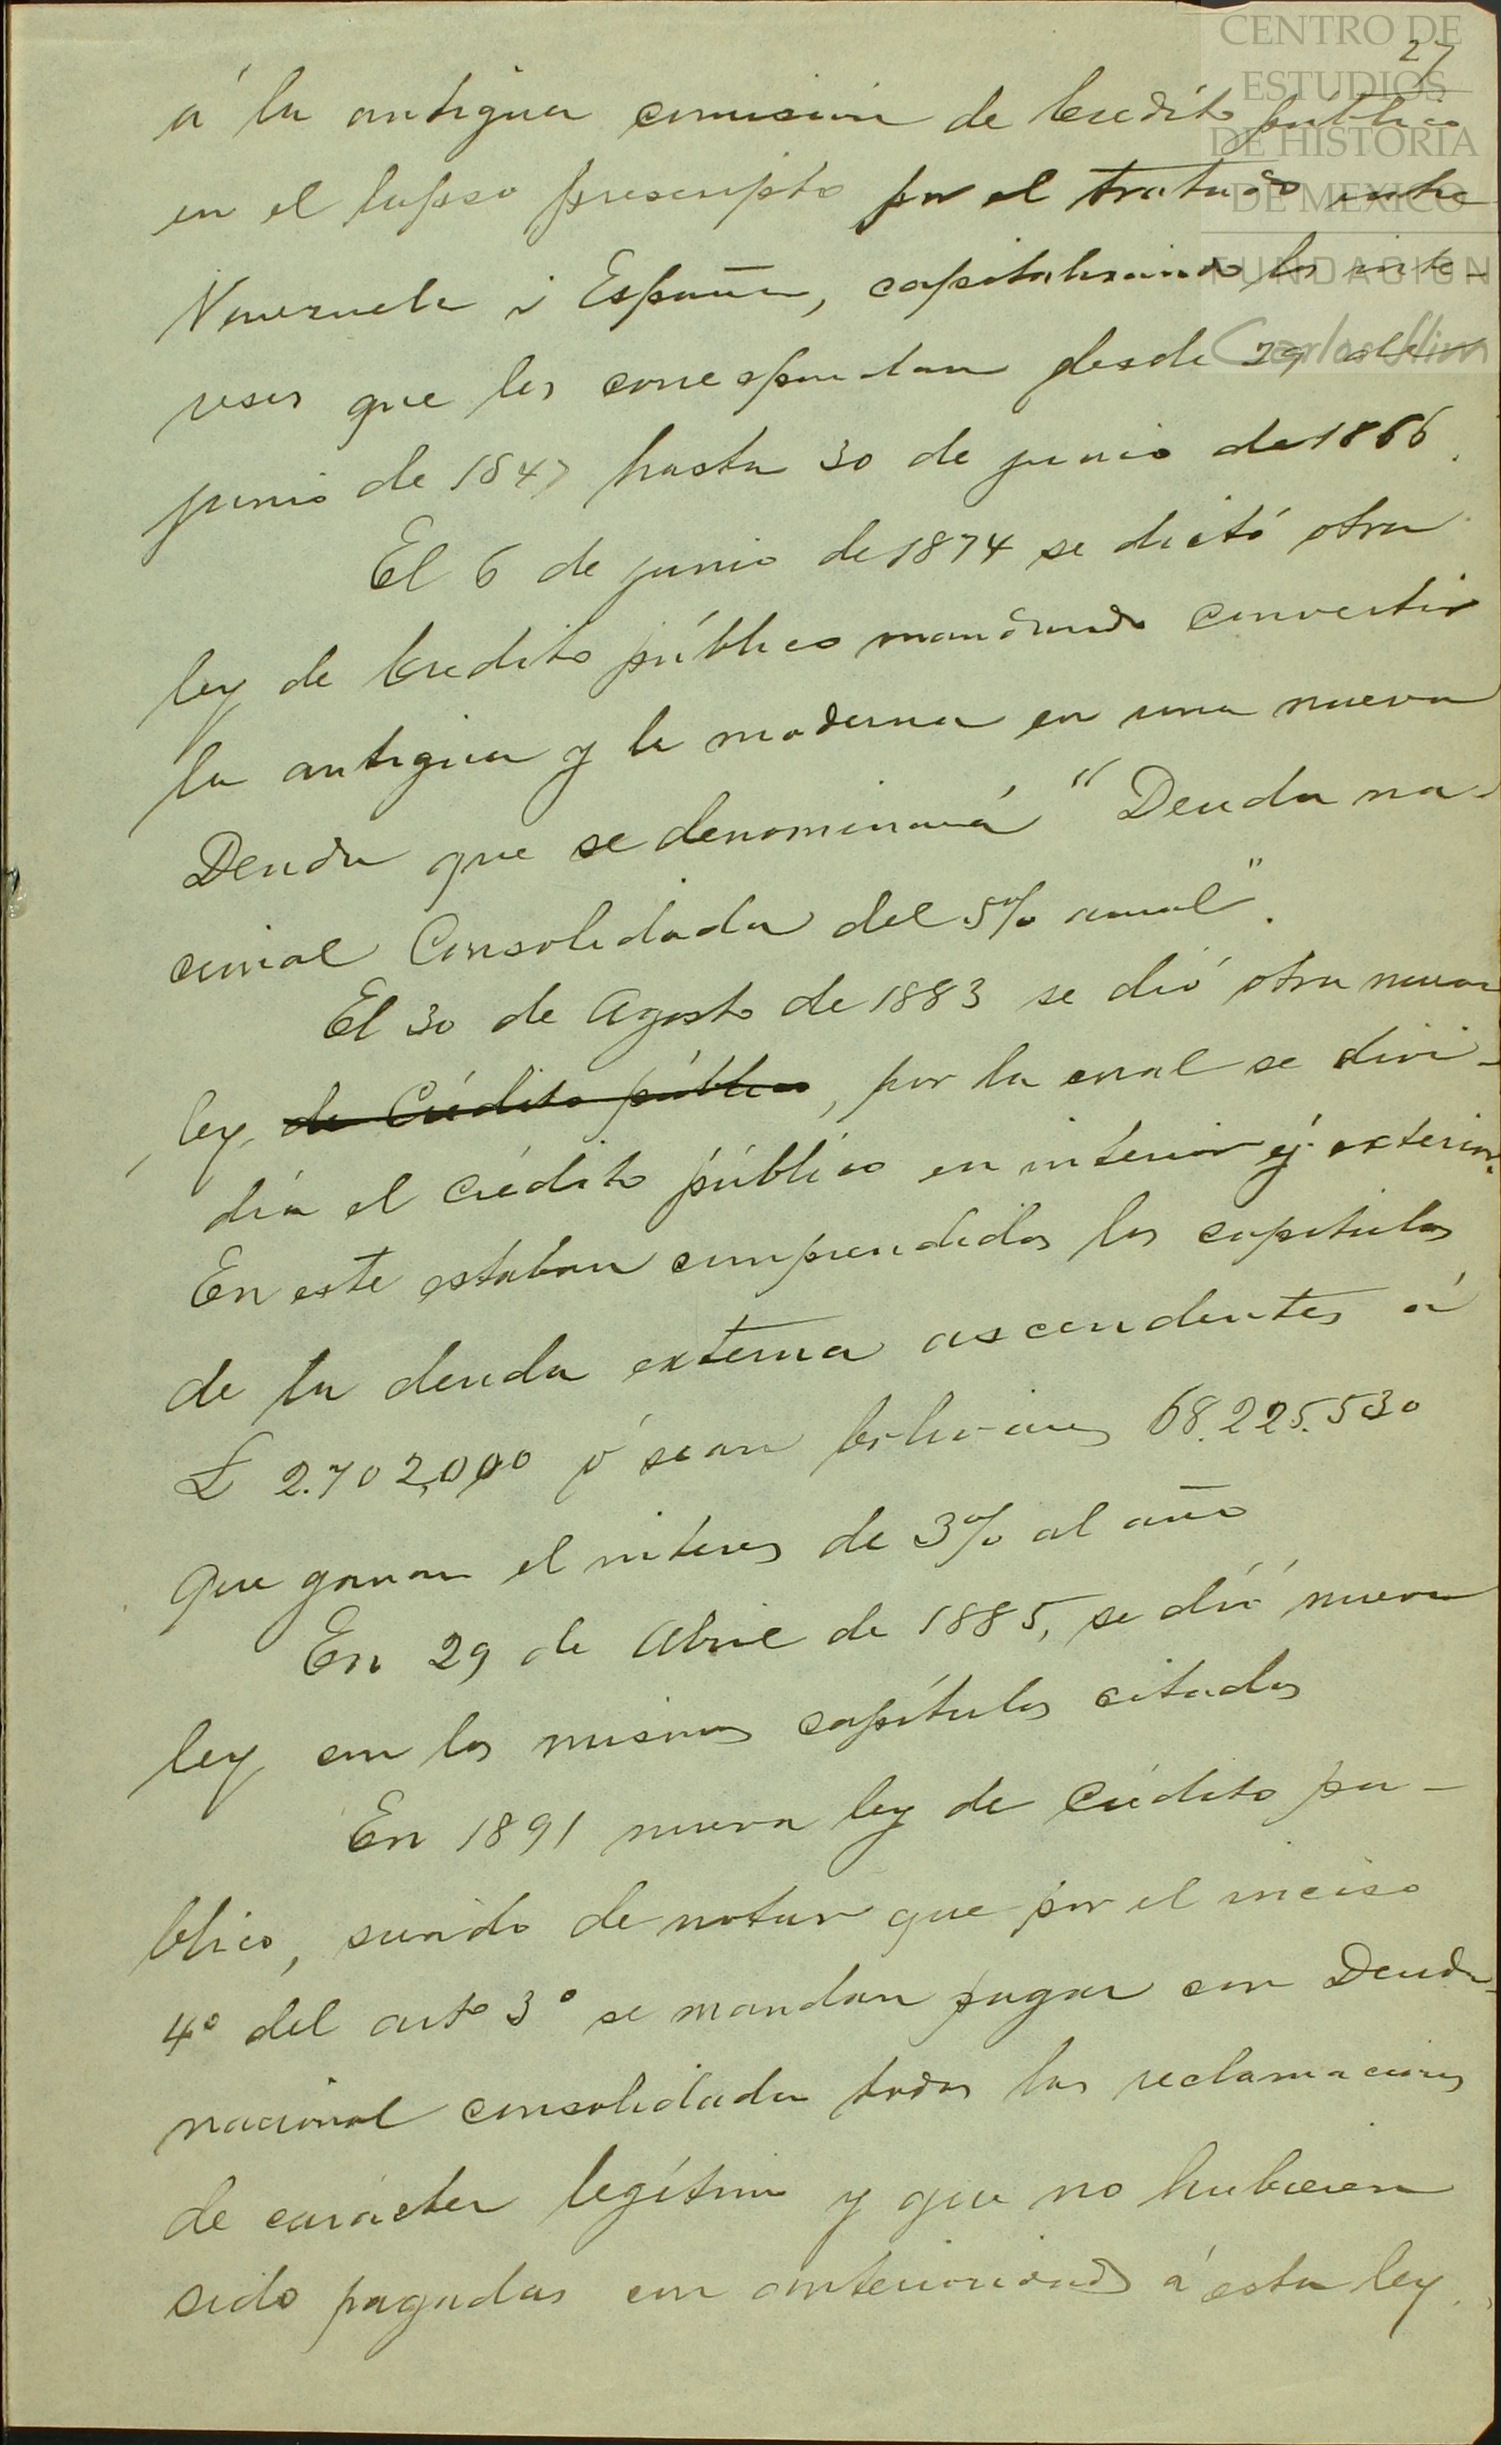 CENTRO DE
ESTUDIOS
DE HISTORIA
DE MEXICO
FUNDACION
Carlos Slim
27
á la antigua comision de Credito público
en el lapso prescripto por el tratado entre
Venezuela i España, capitalizando los inte-
reses que les correspondan desde 29 de
junio de 1847 hasta 30 de junio de 1866.
El 6 de junio de 1874 se dictó otra
ley de Credito público mandando convertir
la antigua y la moderna en una nueva
Deuda que se denominará "Deuda na-
cional Consolidada del 5% anual".
El 30 de Agosto de 1883 se dió otra nueva
ley, de Crédito público, por la cual se divi-
dia el crédito público en interior y exterior.
En este estaban comprendidos los capitulos
de la deuda externa ascendentes á
£ 2.702,000 ó sean bolivares 68.225.530
que ganan el interes de 3% al año
En 29 de Abril de 1885, se dió nueva
ley con los mismos capítulos citados
En 1891 nueva ley de Crédito pu-
blico, siendo de notar que por el inciso
4º del arto 3º se mandan pagar con Deuda
nacional consolidada todas las reclamaciones
de carácter legítimo y que no hubieren
sido pagadas con anterioridad á esta ley.